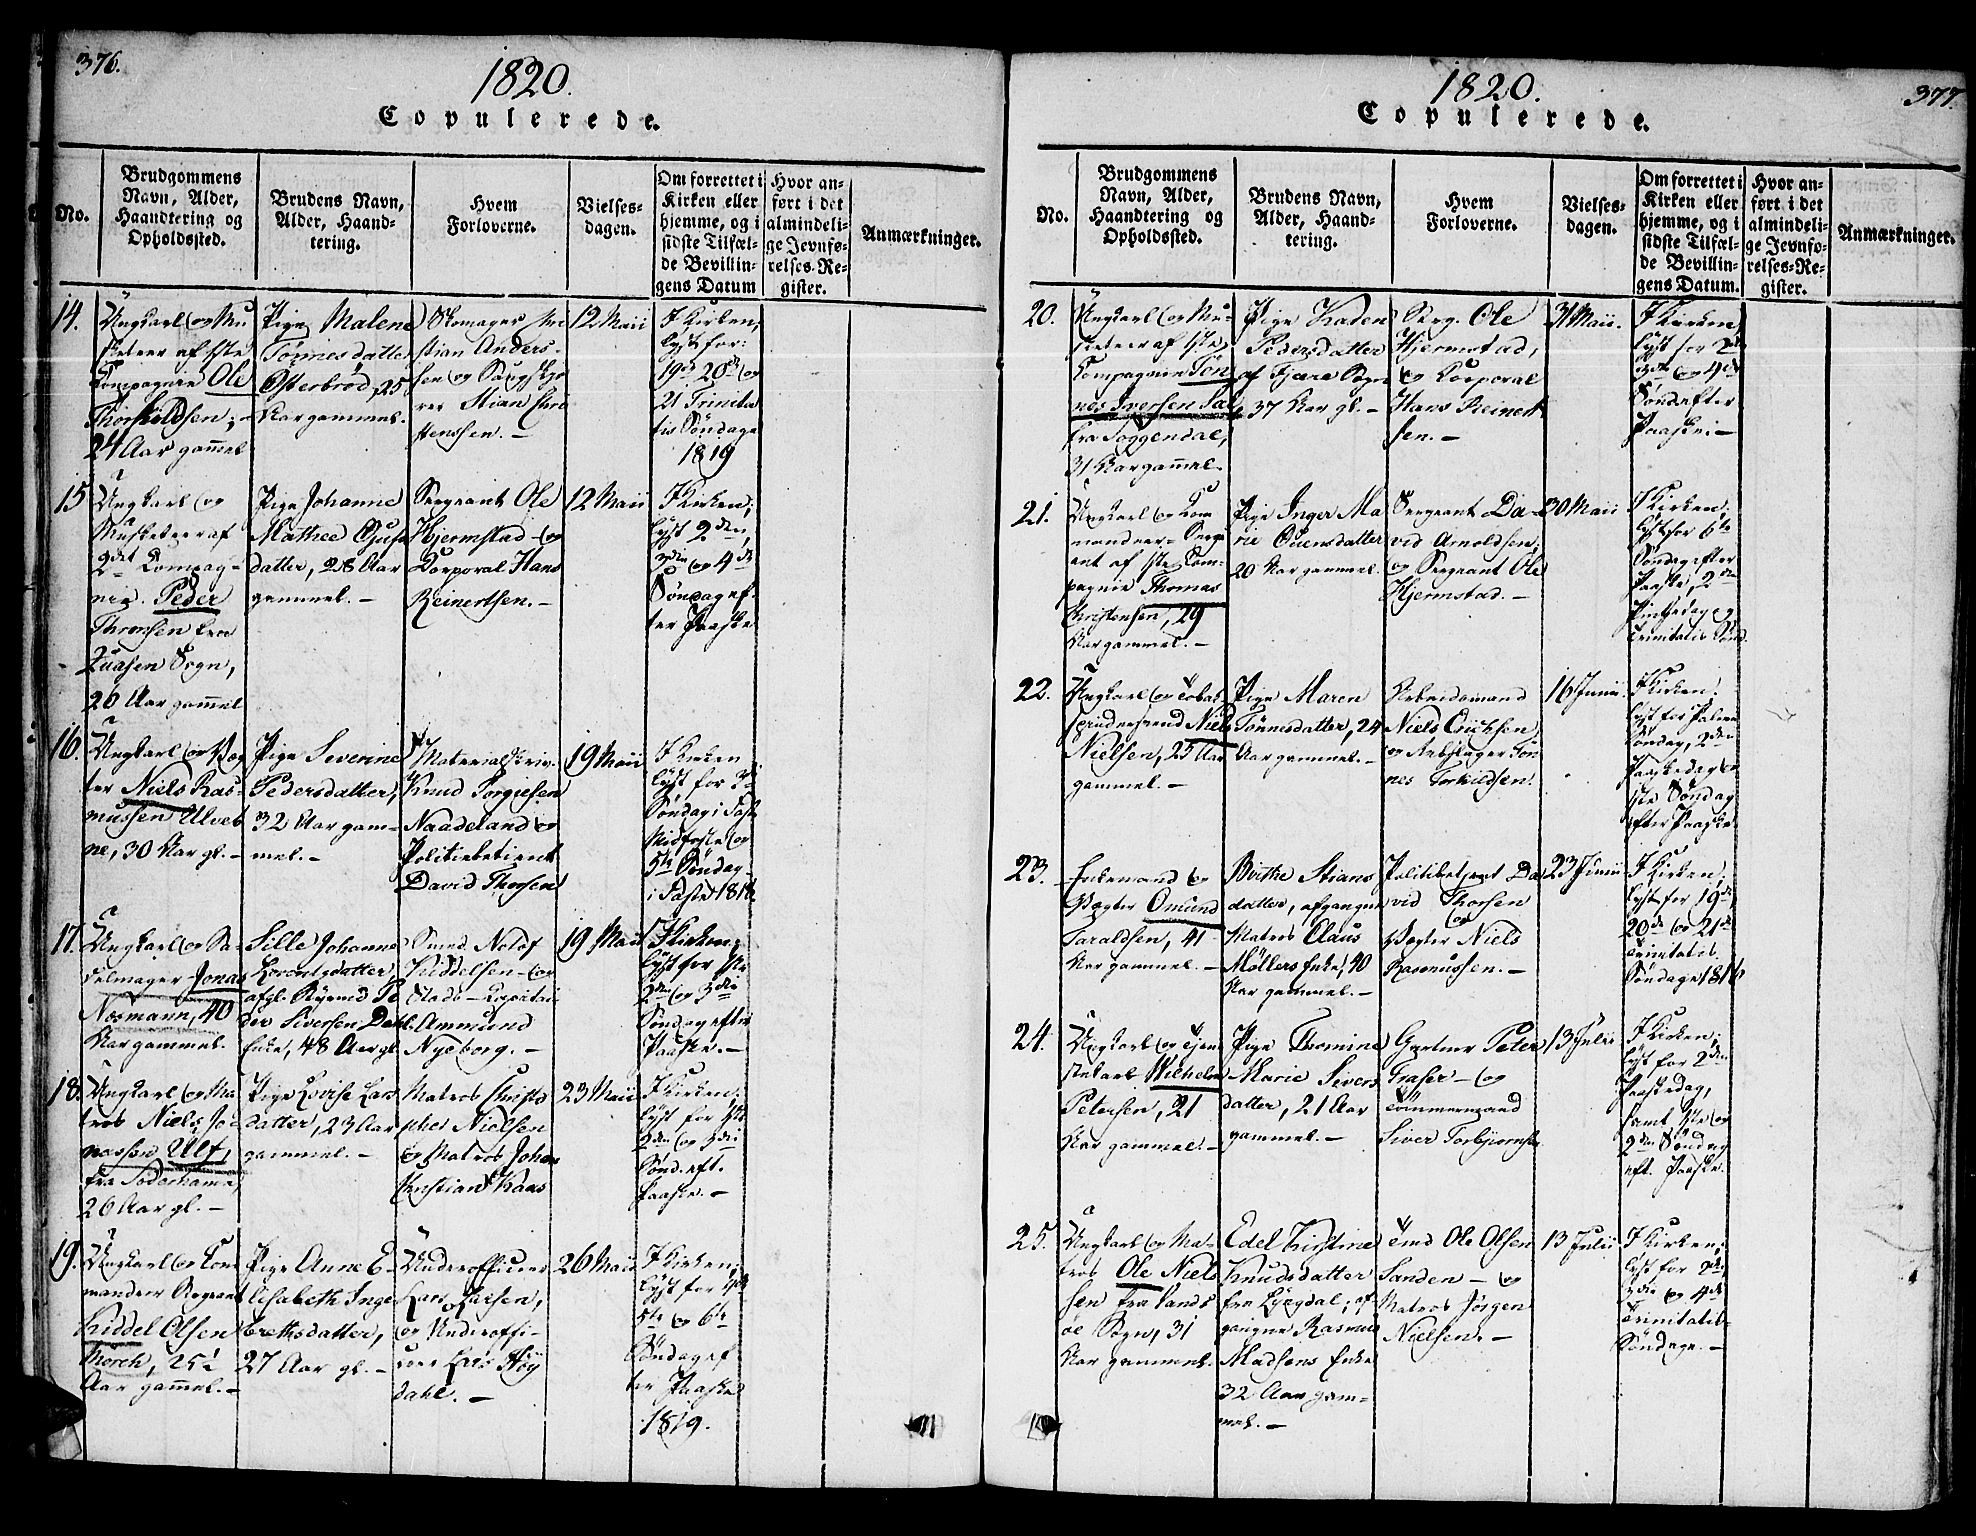 376.
1820.
Copulerede.
No.
Brudgommens
Navn, Alder,
Haandtering og
Opholdssted.
Brudens Navn,
Alder, Haand-
tering.
Hvem
Forloverne.
Vielses-
dagen.
Om forrettet i
Kirken eller
hjemme, og i
sidste Tilfæl-
de Bevillin-
gens Datum
Hvor an-
ført i det
almindeli-
ge Jevnfø-
relses-Re-
gister.
Anmærkninger.
14.
Ungkarl og Mu
sketeer af 1ste
Compagnie Ole
Thorkildsen,
24 Aar gammel
Pige Malene
Tønnesdatter
Osterbrød, 25
Aar gammel.
Skomager Chri
stian Anders-
sen og
Stian Chri
stensen.
12 Maii
I Kirken,
lyst for
19de 20de og
21 Trinita
tis Søndage
1819
15
Ungkarl og
Musketeer af
2det Compag-
nie. Peder
Thronsen fra
Sogn,
26 Aar gammel
Pige Johanne
Mathea
datter, 28 Aar
gammel.
Sergeant Ole
Hjermstad og
Corporal Hans
Reinertsen.
12 Maii
I Kirken;
lyst 2den,
3die og 4de
Søndag ef-
ter Paaske
16.
Ungkarl og Væg
ter Niels Ras-
mussen Ulvet
ne, 30 Aar gl.
Pige Severine
Pedersdatter,
32 Aar gam-
mel.
Materialskriv.
Knud Torgiesen
Naadeland og
Politiebetient
David Thorsen
19 Maii
I Kirken
lyst for 3die
Søndag i Faste
Midfaste og
5te Søndag
i Faste 1818.
17.
Ungkarl og Sa-
delmager Jonas
Nosmann, 40
Aar gammel.
Sille Johanne
Lorentzdatter
afgl. Styrmd Pe
der Siversen Dahl
Enke, 48 Aar gl.
Smed Notof
Kiddelsen og
Stads-Capitain
Ammund
Nyeborg.
19 Maii
I Kirken,
lyst for 1ste
2den og 3die
Søndag efter
Paaske.
18.
Ungkarl og Ma
tros Niels Jo-
nassen Ulf,
fra
26 Aar gl.
Pige Lovise Lars
datter, 23 Aar
gammel.
Matros Christo
pher Nielsen
og Matros Johan
Christian Haas
23 Maii
I Kirken,
lyst for 1ste
2den og 3die
Sønd. eft.
Paaske.
19.
Ungkarl og Com
mandeer Sergeant
Kiddel Olsen
Thorch, 25½
Aar gammel.
Pige Anne E-
lisabeth Inge
brethsdatter,
27 Aar gl.
Underofficeer
Lars Larsen,
og Underoffi-
ceer Lars Høy
dahl.
26 Maii
I Kirken;
lyst for 4de
5te og 6te
Søndag ef
ter Paaske
1819.
377.
1820.
Copulerede.
No.
Brudgommens
Navn, Alder,
Haandtering og
Opholdssted.
Brudens Navn,
Alder, Haand-
tering.
Hvem
Forloverne.
Vielses-
dagen.
Om forrettet i
Kirken eller
hjemme, og i
sidste Tilfæl-
de Bevillin-
gens Datum.
Hvor an-
ført i det
almindeli-
ge Jevnfø-
relses-Re-
gister.
Anmærkninger.
20.
Ungkarl og Mu-
sketeer af 1ste
Compagnie Tøn
nes Iversen
fra Soggendal,
31 Aar gammel.
Pige Karen
Pedersdatter
af Fjære Sogn
37 Aar gl.
Serg. Ole
Hjermstad,
og Corporal
Hans Reinert
sen.
31 Maii.
I Kirken,
lyst for 2den
3die og 4de
Sønd. efter
Paaske.
21.
Ungkarl og Com
mandeer-Serge
ant af 1ste Com-
pagnie Thomas
Christensen, 29
Aar gammel.
Pige Inger Ma
rie Ouensdatter
20 Aar gammel.
Sergeant Da-
vid Arnoldsen,
og Sergeant Ole
Hjermstad.
30 Maii
I Kirken;
lyst for 6te
Søndag efter
Paaske, 2den
Pintsedag og
Trinitatis Sønd.
22.
Ungkarl og Tobak
spindersvend Niels
Nielsen, 25 Aar
gammel.
Pige Maren
Tønnesdatter, 24
Aar gammel.
Arbeidsmand
Niels Erichsen
og Tøn
nes Torkildsen.
16 Junii.
I Kirken;
lyst for Palme
Søndag, 2den
Paaskedag og
1ste Søndag
efter Paaske
23.
Enkemand og
Vægter Omund
Taraldsen, 41
Aar gammel.
Birthe Stians
datter, afgangne
Matros Claus
Møllers Enke, 40
Aar gammel.
Politibetjent Da
vid Thorsen
og
Vægter Niels
Rasmussen.
23 Junii
I Kirken,
lyst for 19de
20de og 21de
Trinitatis
Søndage 1816
24.
Ungkarl og Tjene
stekarl Wilhelm
Petersen, 21
Aar gammel.
Pige Thomine
Marie Sivers
datter, 21 Aar
gammel.
Gartner Peter
Fraser og
Tømmermand
Siver Torbjørnse
13 Julii
I Kirken;
lyst for 2den
Paaskedag,
samt 1ste og
2den Søndag
eft. Paaske.
25.
Ungkarl og Ma-
tros Ole Niels
sen fra Lands
øe Sogn, 31
Aar gammel.
Edel Kirstine
Knudsdatter
fra Lyngdal, af
gangne Rasmus
Madsens Enke
32 Aar gam-
mel.
Ole Olsen
Sanden og
Matros Jørgen
Nielsen.
13 Julii
I Kirken;
lyst for 2den
3die og 4de
Trinitatis
Søndage.